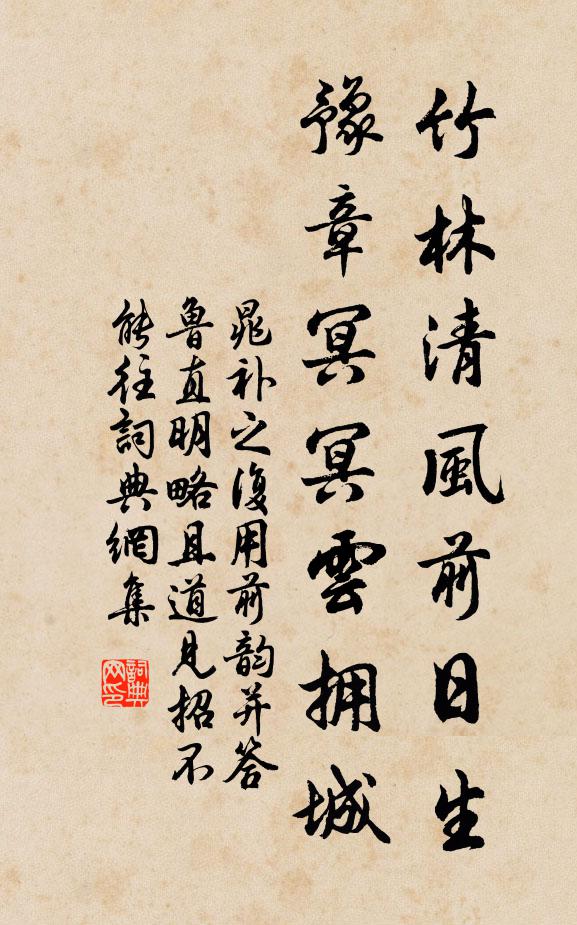 竹林清風前日生
豫章冥冥雲拥城
晁补之復用前韵并答
鲁直明略且道見招不
能往詞典網集
詞典网印